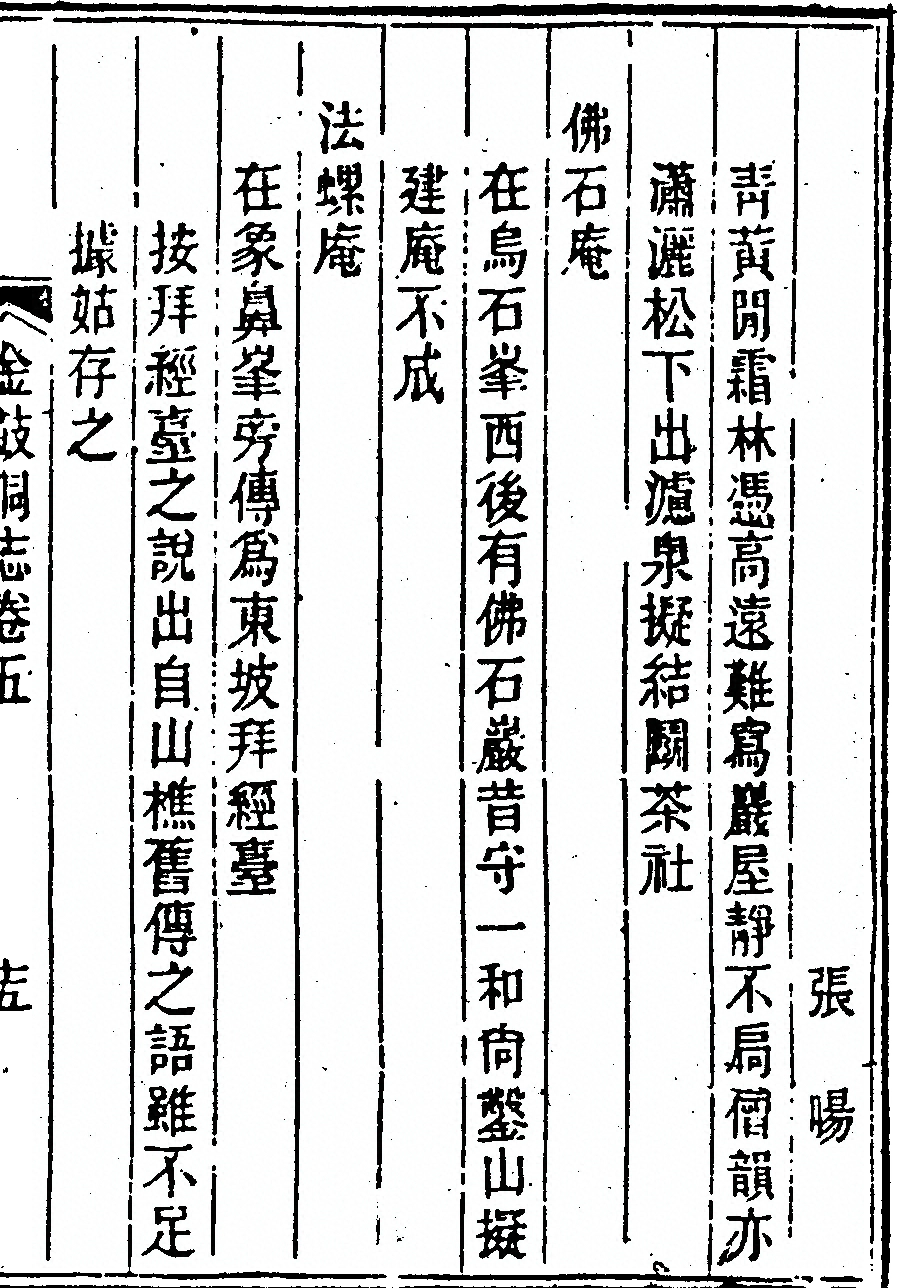 張暘
青黃閒霜林憑高遠難寫巖屋靜不扃僧韻亦
瀟灑松下出濾泉擬結鬭茶社
佛石庵
在烏石峯西後有佛石巖昔守一和尚鑿山擬
建庵不成
法螺庵
在象鼻峯旁傳爲東坡拜經臺
按拜經臺之說出自山樵舊傳之語雖不足
據姑存之
金鼓洞志卷五